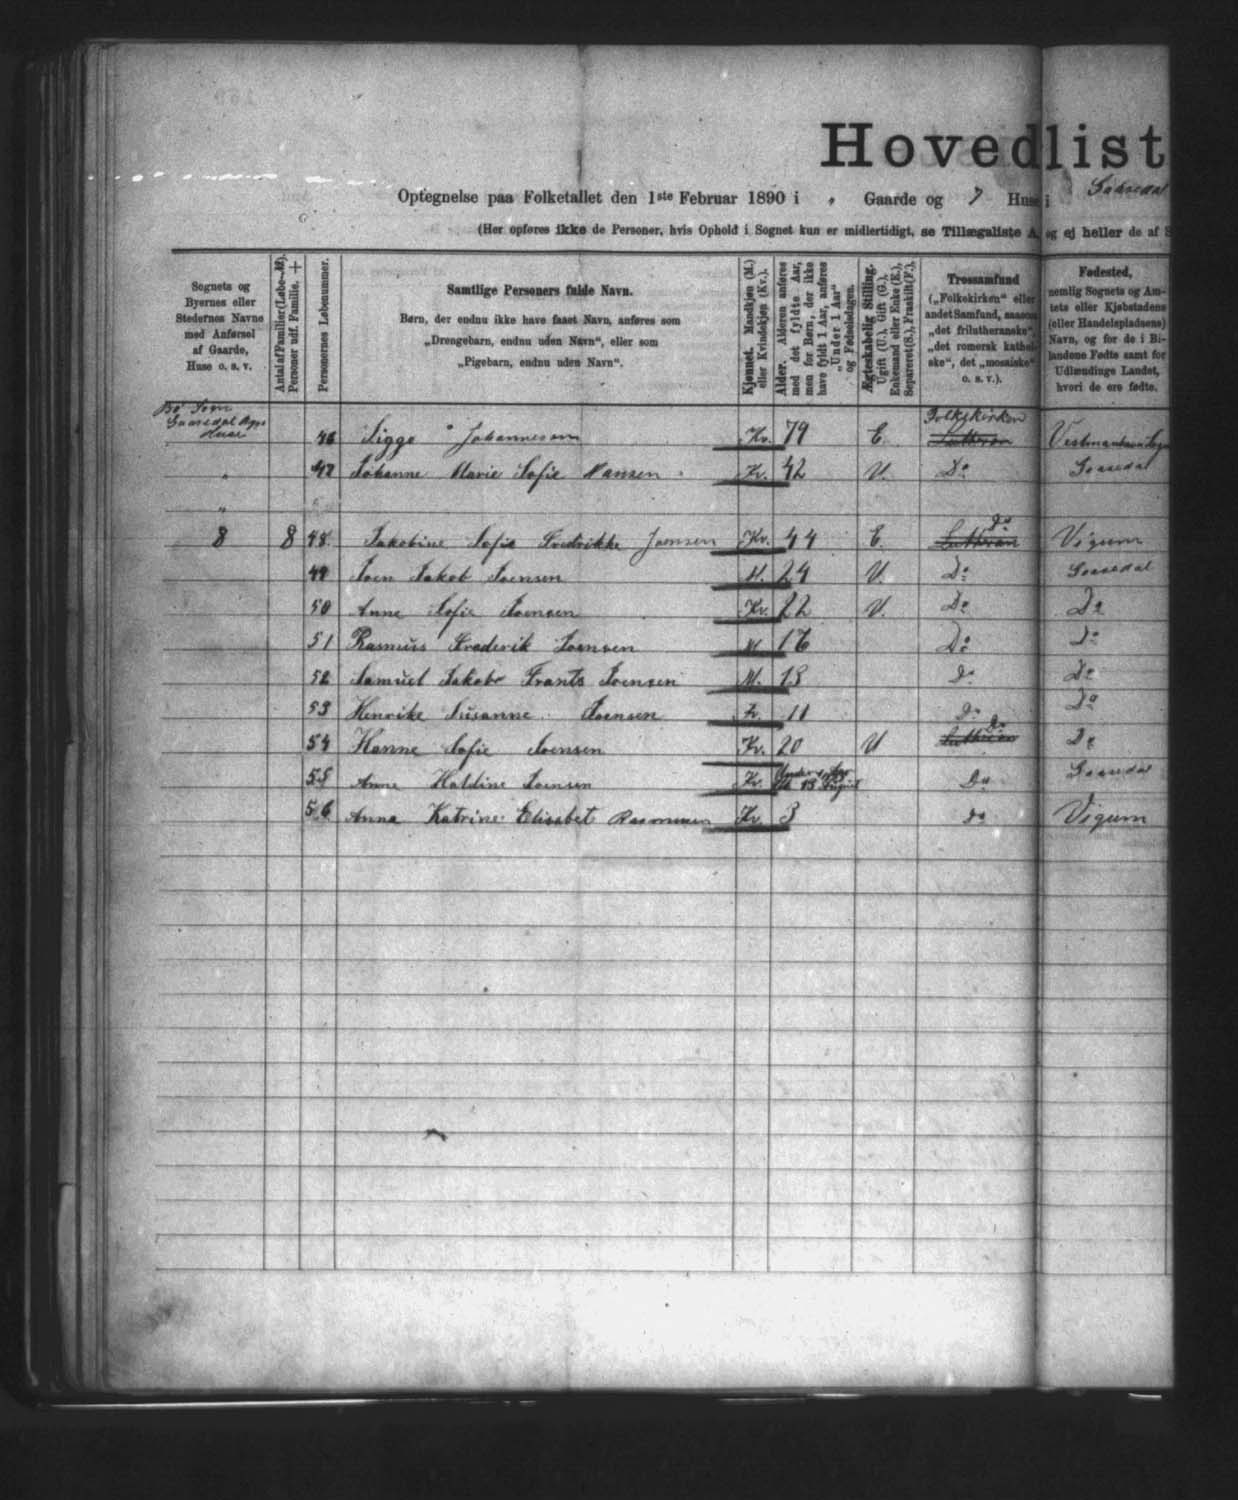 Hovedlist
Optegnelse paa Folketallet den 1ste Februar 1890 i „ Gaarde og 7 Huse i Gaasedal
(Her opføres ikke de Personer, hvis Ophold i Sognet kun er midlertidigt, se Tillægsliste A, og ej heller de af S
Sognets og Byernes eller Stedernes Navne med Anførsel af Gaarde, Huse o. s. v.
Antal af Familier (Løbe-№). Personer udf. Familie. +
Personernes Løbenummer.
Samtlige Personers fulde Navn.
Børn, der endnu ikke have faaet Navn, anføres som
„Drengebarn, endnu uden Navn“, eller som
„Pigebarn, endnu uden Navn“.
Kjønnet. Mandkjøn (M.) eller Kvindekjøn (Kv.).
Alder. Alderen anføres med det fyldte Aar, men for Børn, der ikke have fyldt 1 Aar, anføres „Under 1 Aar“ og Fødselsdagen.
Ægteskabelig Stilling. Ugift (U.), Gift (G.), Enkemand eller Enke (E.), Separeret (S.), Fraskilt (F.).
Trossamfund
(„Folkekirken“ eller andet Samfund, saasom „det frilutheranske“, „det romersk katholske“, det „mosaiske“ o. s. v.).
Fødested,
nemlig Sognets og Amtets eller Kjøbstadens (eller Handelspladsens) Navn, og for de i Bilandene Fødte samt for Udlændinge Landet, hvori de ere fødte.
Bø Sogn
Gaasedal Bygd
Huse
46 Sigge Johannesen Kv. 79 E. Folkekirken Lutheran
47 Johanne Marie Sofie Hansen Kv. 42 U. Do Gaasedal
„
8 8 48 Jakobine Sofie Fredrikke Joensen Kv. 44 E. Lutheran do Vigum
49 Joen Jakob Joensen M. 24 U. Do Gaasedal
50 Anne Sofie Joensen Kv. 22 U. Do Do
51 Rasmus Frederik Joensen M. 16 Do Do
52 Samuel Jakob Frants Joensen M. 13 Do Do
53 Henrike Susanne Joensen 11 Do Do
54 Hanne Sofie Joensen Kv. 20 U Lutheran do Do
55 Anne Haldine Joensen Kv. Under 1 Aar Do Gaasedal
56 Anna Katrine Elisabet Rasmussen Kv. 3 do Vigum